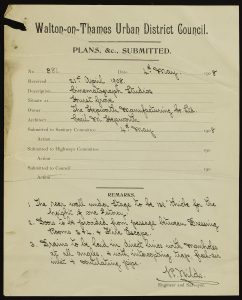 Walton-on-Thames Urban District Council.
PLANS, &c., SUBMITTED.
No. 881 Date 4th May. 1908
Received 21st April 1908.
Description Cinematograph Studios
Situate at Hurst Grove
Owner The Hepworth Manufacturing Co Ld.
Architect Cecil M. Hepworth
Submitted to Sanitary Committee 4th May 1908
Action
Submitted to Highways Committee
Action
Submitted to Council
Action
REMARKS.
1. The rear wall under stage to be 14" thick for the
height of one storey.
2. Doors to be provided from passage between Dressing
Rooms 3 & 4 & Fire Escape.
3. Drains to be laid in direct lines with manholes
at all angles, & with intercepting trap, fresh air
inlet & ventilating pipe
Engineer and Surveyor.